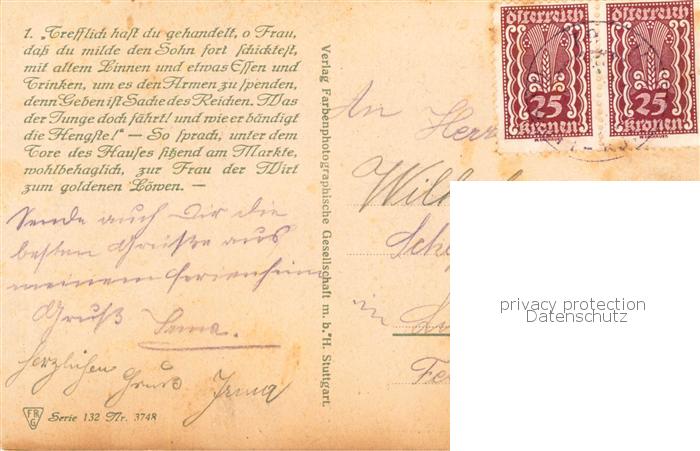 1. „Trefflich hast du gehandelt, o Frau,
daß du milde den Sohn fort schicktest,
mit altem Linnen und etwas Essen und
Trinken, um es den Armen zu spenden,
denn Geben ist Sache des Reichen. Was
der Junge doch fährt! und wie er bändigt
die Hengste!“ — So sprach, unter dem
Tore des Hauses sitzend am Markte,
wohlbehaglich, zur Frau der Wirt
zum goldenen Löwen. —
Sende auch Dir die
besten Grüße aus
meinem Ferienheim
Gruß
herzlichen Gruß Irma
FRG
Serie 132 Nr. 3748
Verlag Farbenphotographische Gesellschaft m. b. H. Stuttgart.
österreich
25
kronen
österreich
25
kronen
An Herr
in
privacy protection
Datenschutz